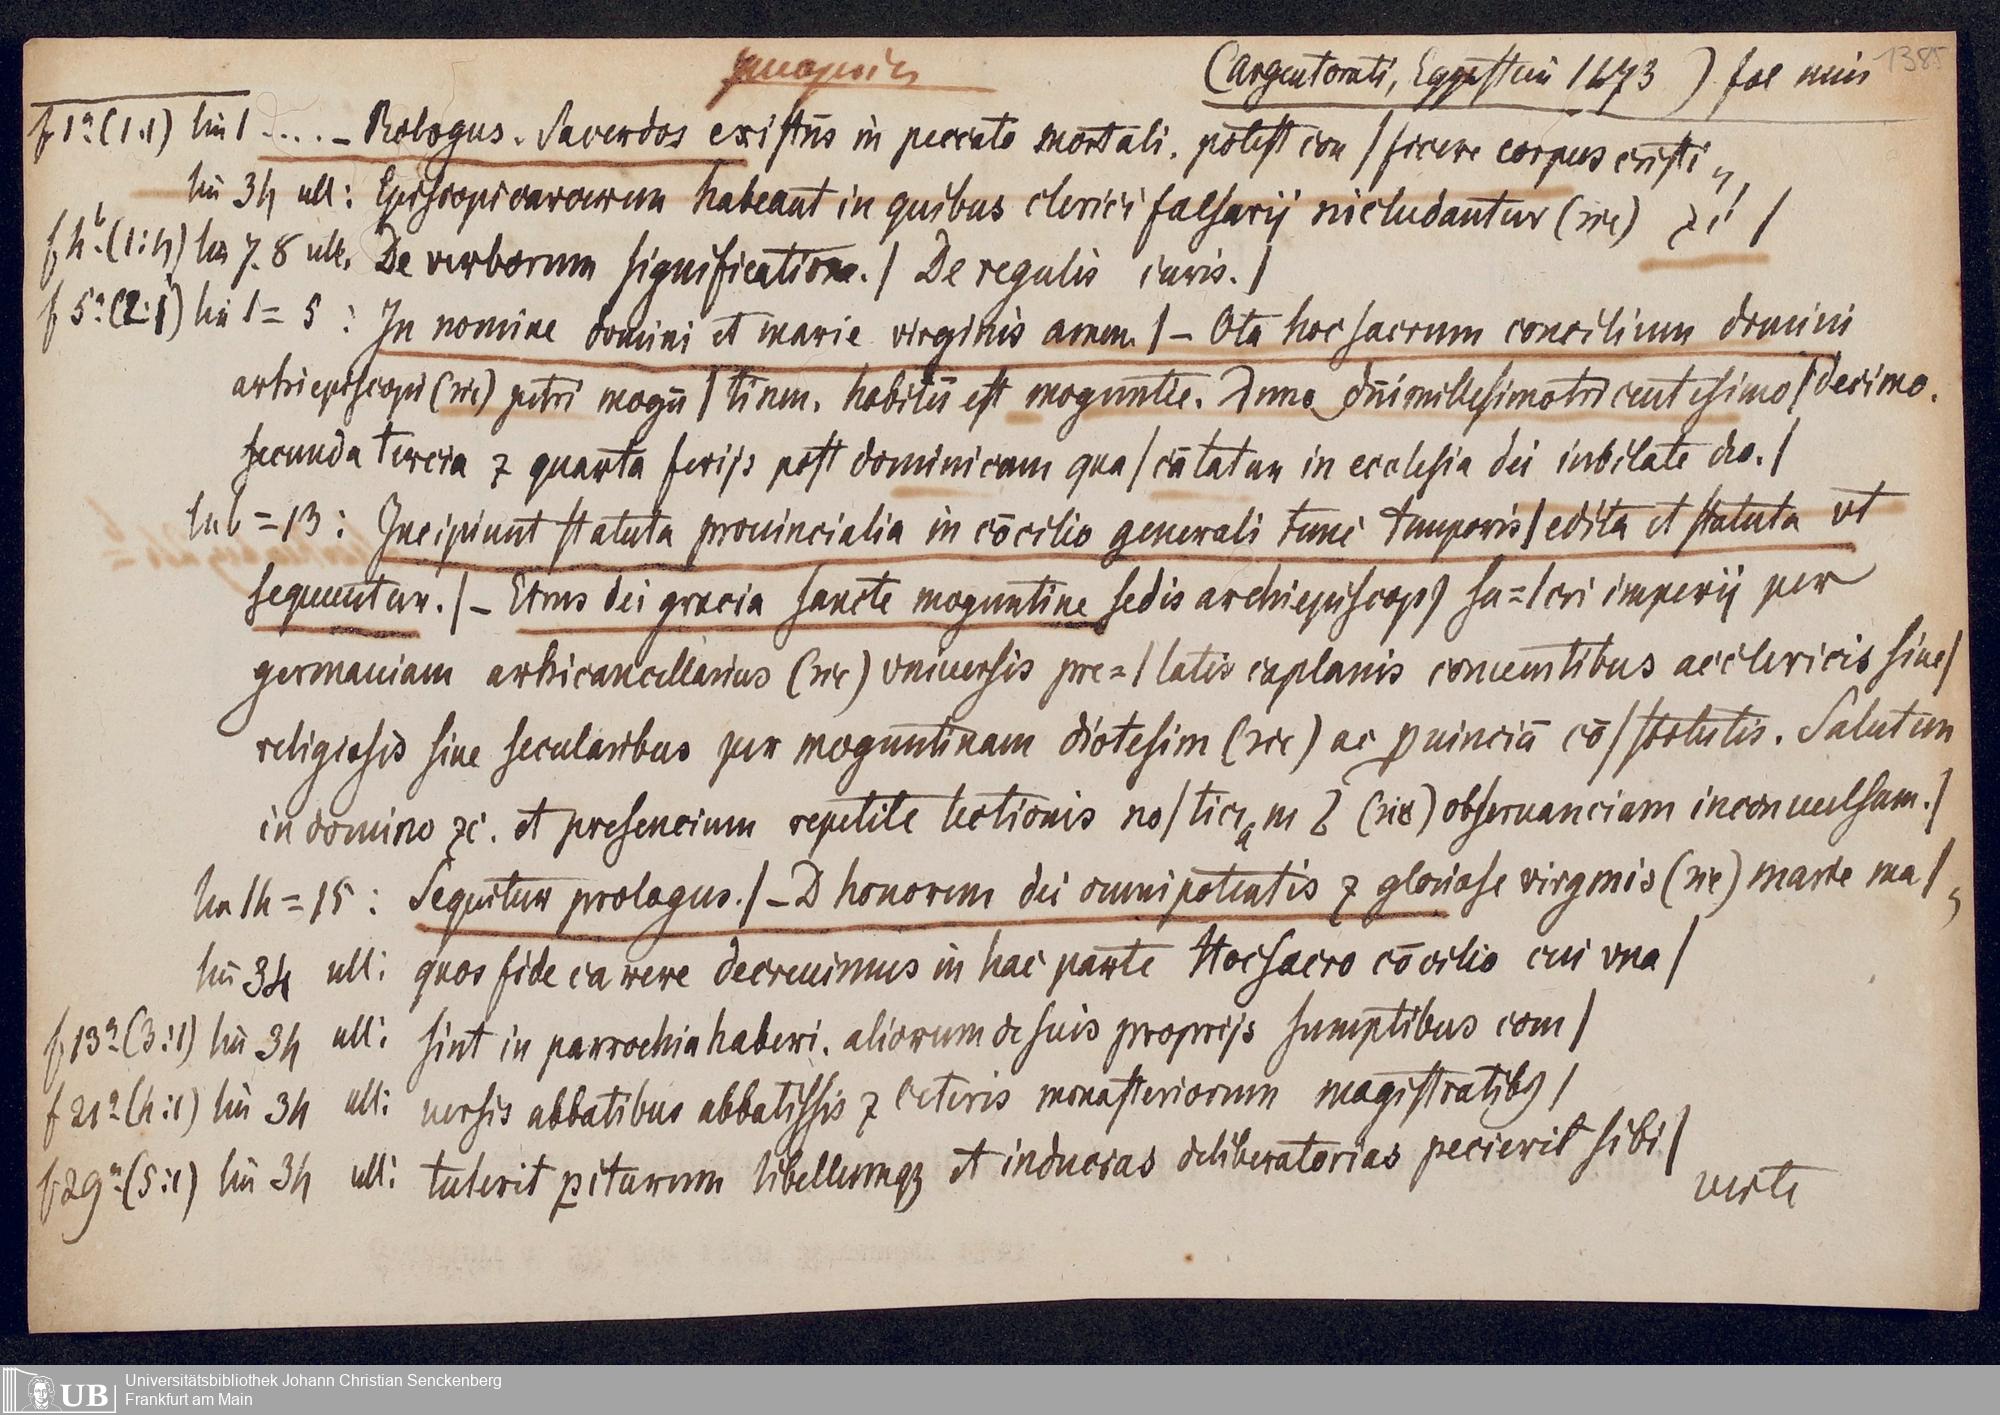 (Argentorati, Eggestein 1473) fol min 1385
f 1a (1:1) lin 1 .... – Rologus. Sacerdos existēs in peccato mortali. potest con / ficere corpus cristi „
lin 34 ult: Episcopi carcerem habeant in quibus clerici falsarij nicludantur (sic) ⁊c̄ ! /
f 4b (1:4) lin 7. 8 ult. De verborum significatione. / De regulis iuris. /
f 5a (2:1) lin 1 = 5 : In nomine domini et marie virginis amen. / – Ota hoc sacrum concilium domini
arhiepiscopi (sic) petri mogū / tinen. habitū est moguntie. Anno dn̄i millesimotricentesimo / decimo.
secunda tercia ⁊ quarta ferijs post dominicam qua / cātatur in ecclesia dei iubilate deo. /
lin 6 = 13 : Incipiunt statuta prouincialia in cōcilio generali tunc temporis / edita et statuta vt
sequuntur. / – Etrus dei gracia sancte moguntine sedis archiepiscopꝰ sa= / cri imperij per
germaniam arhicancellarius (sic) vniuersis pre= / latis caplanis conuentibus ac clericis siue /
religiosis siue secularibus per moguntinam diotesim (sic) ac ꝓuinciā cō / stitutis. Salutem
in domino ⁊c̄. et presencium repetite lectionis no / ticiam ⁊ (sic) obseruanciam inconuulsam. /
lin 14 = 15 : Sequitur prologus. / – D honorem dei omnipotentis ⁊ gloriose virgmis (sic) marie ma / „
lin 34 ult: quos fide carere decreuimus in hac parte Hoc sacro cōcilio cui vna /
f 13a (3:1) lin 34 ult: sint in parrochia haberi. aliorum de suis proprijs sumptibus com /
f 21a (4:1) lin 34 ult: uersis abbatibus abbatissis ⁊ ceteris monasteriorum magistratibꝫ /
f 29a (5:1) lin 34 ult: tulerit ꝑiturum libellumqꝫ et inducias deliberatorias pecierit sibi /
verte
UB
Universitätsbibliothek Johann Christian Senckenberg
Frankfurt am Main